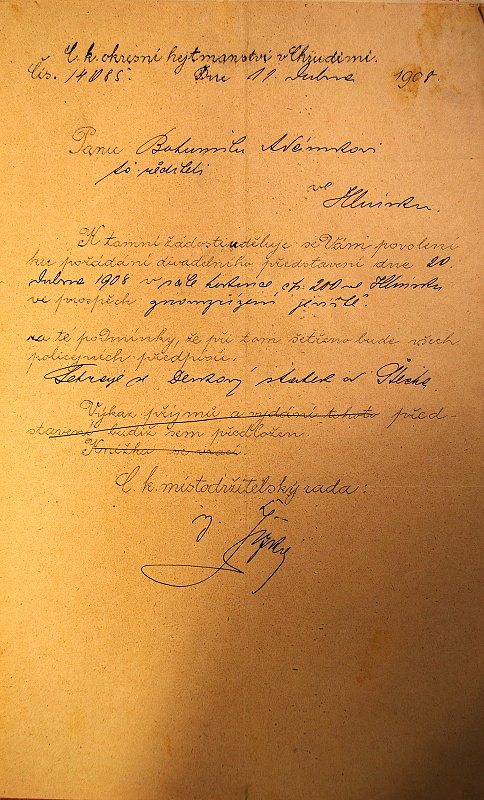 C. k. okresní hejtmanství v Chrudimi.
Čís. 14085. Dne 11 dubna 1908.
Panu Bohumilu Adámkovi
řediteli
ve Hlinsku.
K tamní žádosti uděluje se Vám povolení
ku pořádání divadelního představení dne 20.
dubna 1908 v sále hostince čp. 200 ve Hlinsku
ve prospěch jeviště.
na té podmínky, že při tom šetřeno bude všech
policejních předpisů.
Sehraje se Devkový statek od Šticha.
Výkaz příjmů a vydání tohoto před-
stavení budiž sem předložen.
Knížka se vrací.
C. k. místodržitelský rada: